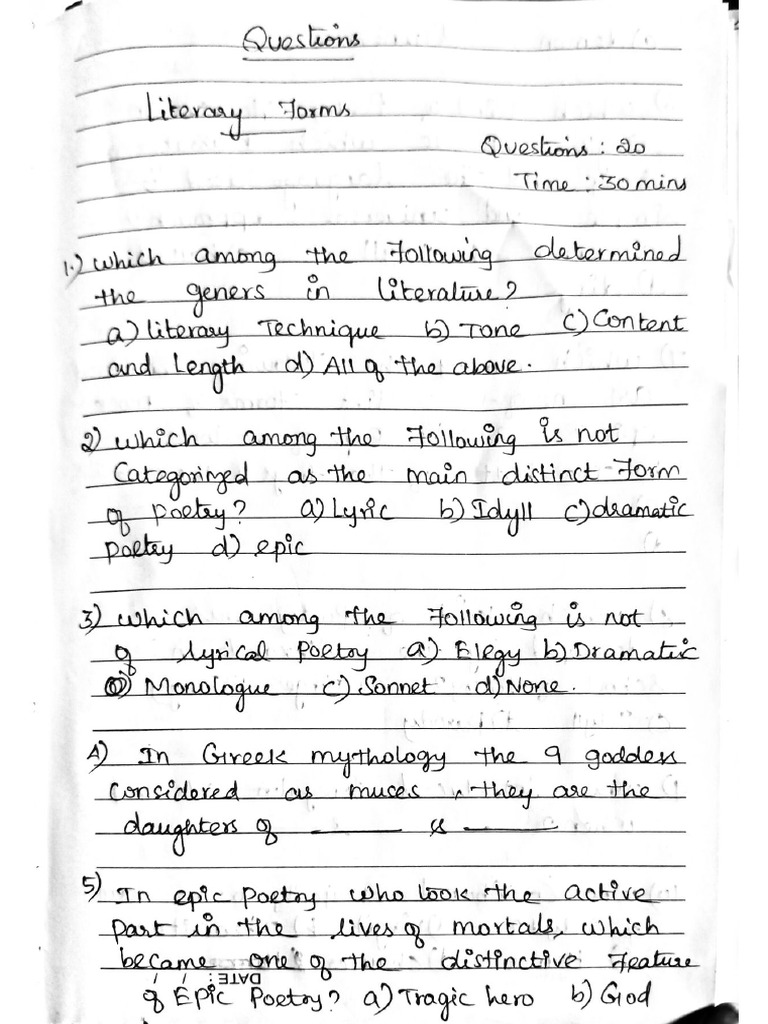 Questions
Literary Forms
Questions : 20
Time : 30 mins
1.) which among the Following determined
the geners in literature?
a) literary Technique b) Tone c) Content
and Length d) All of the above.
2) which among the Following is not
Categorinzed as the main distinct Form
of poetry? a) Lyric b) Idyll c) dramatic
poetry d) epic
3) which among the Following is not
of lyrical poetry a) Elegy b) Dramatic
Monologue c) Sonnet d) None.
4) In Greek mythology the 9 goddess
Considered as muces, they are the
daughters of ______ & ______
5) In epic poetry who look the active
part in the lives of mortals, which
became one of the distinctive Feature
DATE:
of Epic Poetry? a) Tragic hero b) God